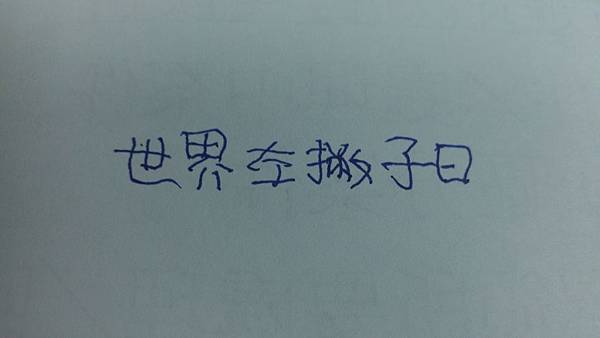 世界左撇子日